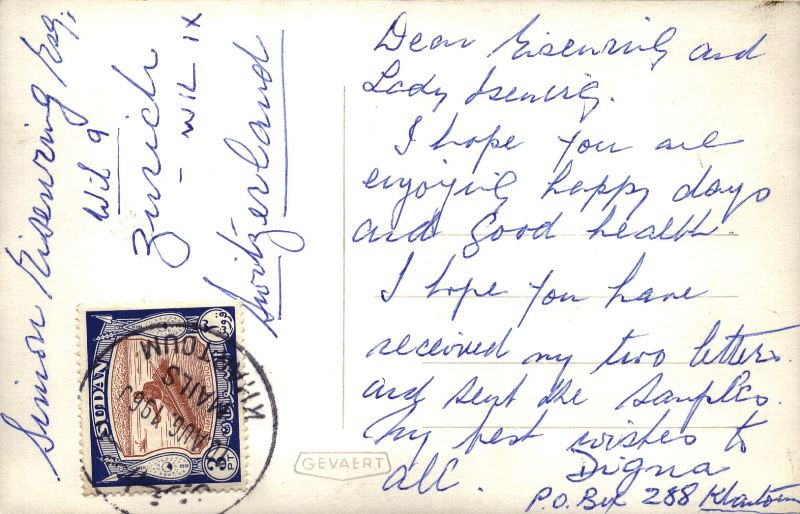 Dear Eisenring and
Lady Isenrig.
I hope you are
enjoying happy days
and good health.
I hope you have
received my two letters.
and sent the samples.
My best wishes to
all. Digna
P.O. Box 288 Khartoum
Simon Eisenring Esq,
Wil 9
Zurich
- WIL IX
Switzerland
SUDAN
3 PT
KHARTOUM
MAILS
AUG. 196
GEVAERT